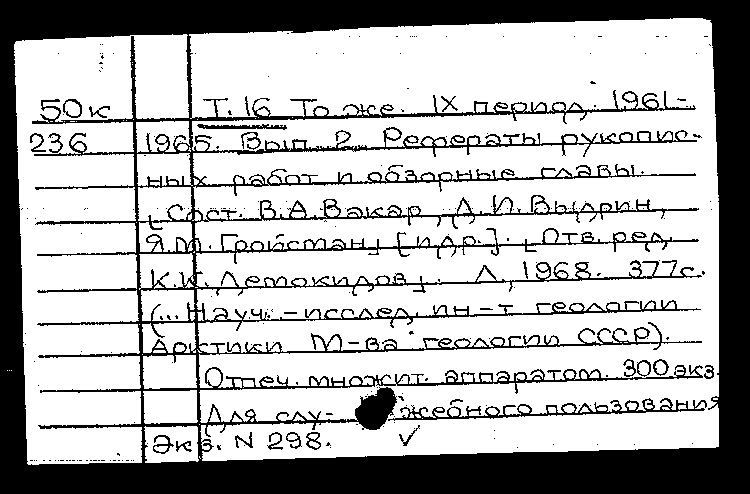 50к Т. 16 То же. IX период, 1961-
236 1965. Вып. 2. Рефераты рукопис-
ных работ и обзорные главы.
[Сост. В.А. Вакар, Д.И. Выдрин,
Я.М. Гройсман] [и др.]. [Отв. ред.
К.К. Демокидов]. Л., 1968. 377с.
(... Науч.-исслед. ин-т геологии
Арктики М-ва геологии СССР).
Отпеч. множит. аппаратом. 300 экз.
Для слу- жебного пользования
Экз. N 298.